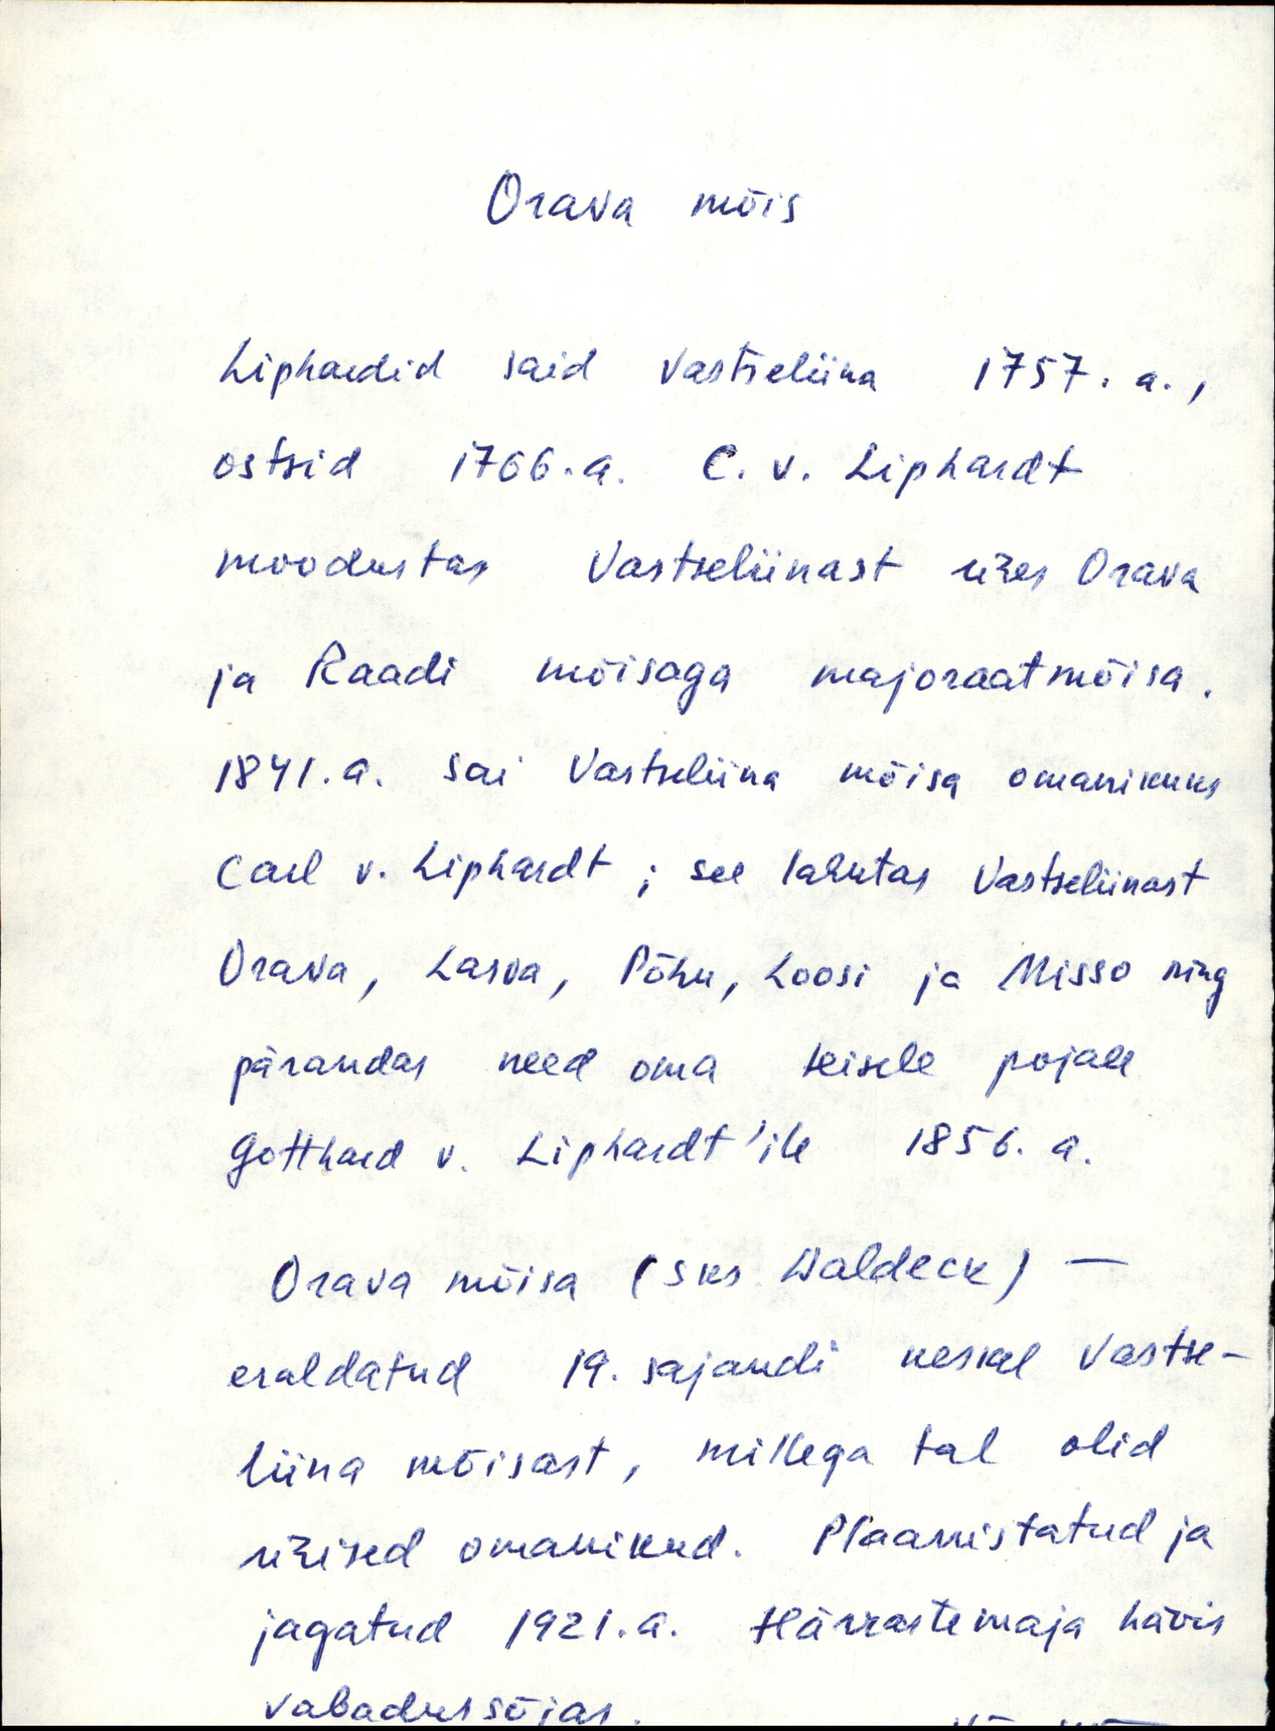 Orava mõis
Liphardid said Vastseliina 1757. a.,
ostsid 1766. a. C. v. Liphardt
moodustas Vastseliinast ühes Orava
ja Raadi mõisaga majoraatmõisa.
1841. a. sai Vastseliina mõisa omanikuks
Carl v. Liphardt; see lahutas Vastseliinast
Orava, Lasva, Põhu, Loosi ja Misso ning
pärandas need oma teisele pojale
Gotthard v. Liphardt'ile 1856. a.
Orava mõisa (sks Waldeck) —
eraldatud 19. sajandi keskel Vastse-
liina mõisast, millega tal olid
ühised omanikud. Plaanistatud ja
jagatud 1921. a. Härrastemaja hävis
vabadussõjas.